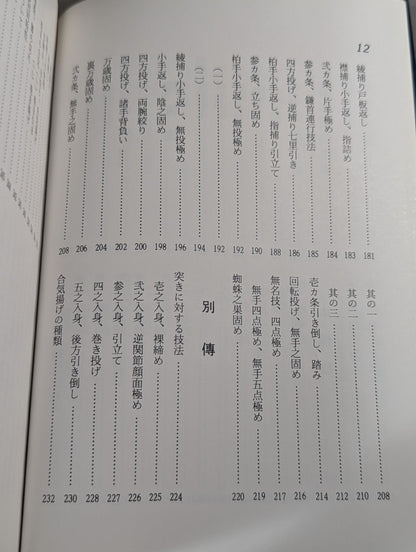 12
綾捕り戸板返し 181
襟捕り小手返し、指詰め 183
弐カ条、片手極め 184
参カ条、鎌首連行技法 185
四方投げ、逆捕り七里引き 186
柏手小手返し、指捕り引立て 188
参カ条、立ち固め 190
柏手小手返し、無投極め 192
(一) 192
(二) 194
綾捕り小手返し、無投極め 196
小手返し、陰之固め 198
四方投げ、両腕絞り 200
四方投げ、諸手背負い 202
万歳固め 204
裏万歳固め 206
弐カ条、無手之固め 208
其の一 208
其の二 210
其の三 212
壱カ条引き倒し、踏み 214
回転投げ、無手之固め 216
無名技、四点極め 217
無手四点極め、無手五点極め 219
蜘蛛之巣固め 220
別傳
突きに対する技法 224
壱之入身、裸締め 225
弐之入身、逆関節顔面極め 226
参之入身、引立て 227
四之入身、巻き投げ 228
五之入身、後方引き倒し 230
合気揚げの種類 232